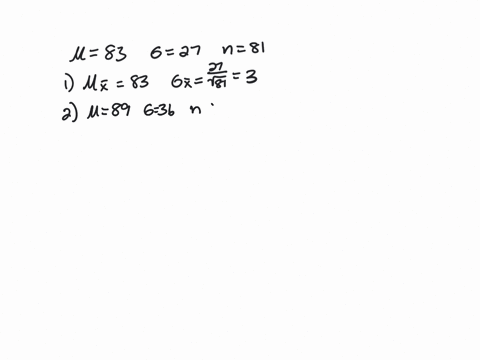 μ = 83 σ = 27 n = 81
1) μx̄ = 83 σx̄ = 27/√81 = 3
2) μ = 89 σ = 36 n